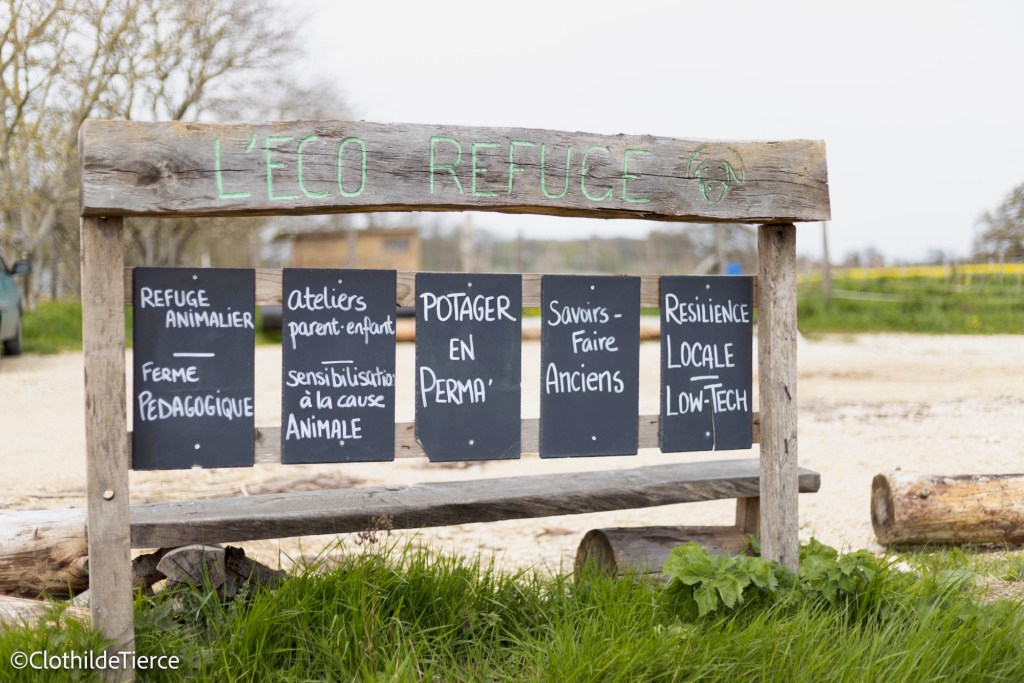 L'ECO REFUGE
REFUGE
ANIMALIER
FERME
PÉDAGOGIQUE
ateliers
parent-enfant
sensibilisation
à la cause
ANIMALE
POTAGER
EN
PERMA'
Savoirs-
Faire
Anciens
RESILIENCE
LOCALE
LOW-TECH
©ClothildeTierce